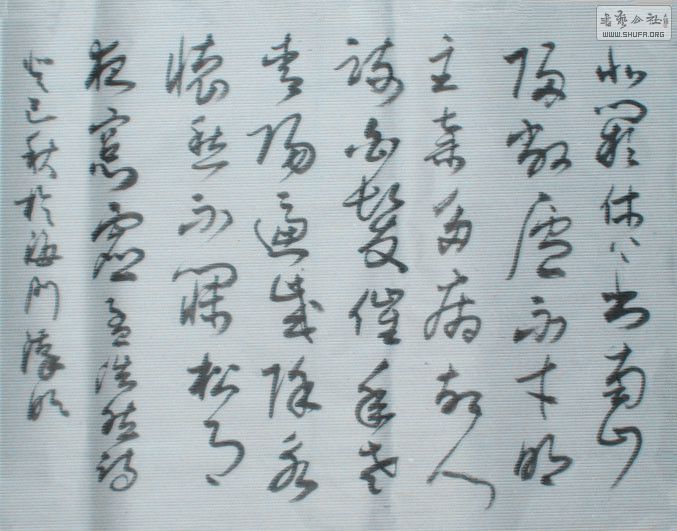 北闕休上书南山
歸敝廬不才明
主棄多病故人
疎白髮催年老
青陽逼歲除永
懷愁不寐松月
夜窓虚孟浩然詩
癸巳秋於海門
書藝公社
WWW.SHUFA.ORG